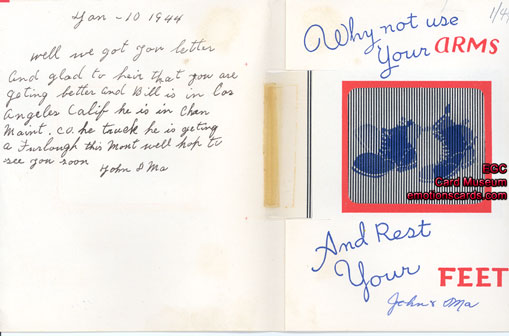 Jan -10 1944
well we got your letter
and glad to heir that you are
geting better and Bill is in Los
Angeles Calif he is in Chan
Maint. CO. he truck he is geting
a Furlough this Mont well hope to
see you soon
John & Ma
1/44
Why not use
Your ARMS
EGC
Card Museum
emotionscards.com
And Rest
Your FEET
John & Ma